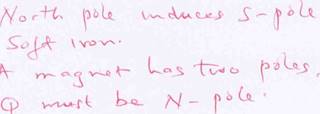 North pole induces S-pole
Soft iron.
A magnet has two poles,
Q must be N-pole.